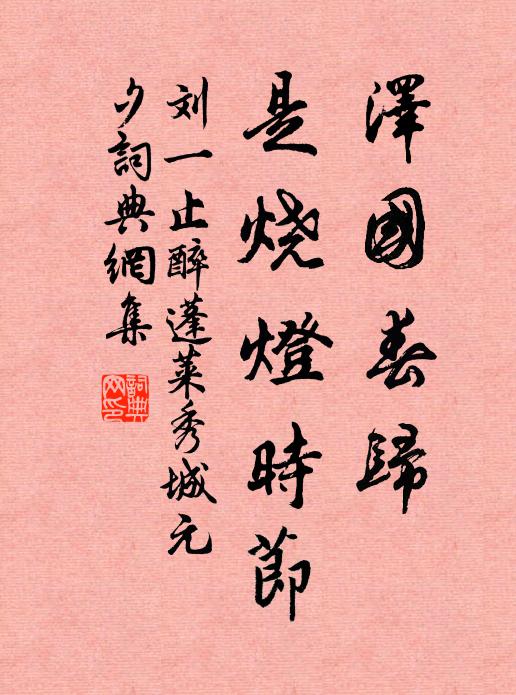 澤國春歸
是烧燈時節
刘一止醉蓬莱秀城元
夕詞典網集
詞典
网印